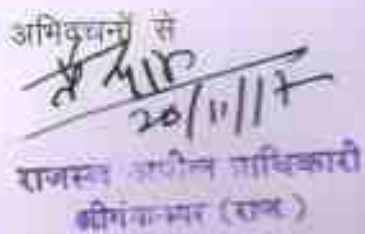 अभिवचनों से
20/11/17
राजस्व अपील प्राधिकारी
श्रीगंगानगर (राज०)